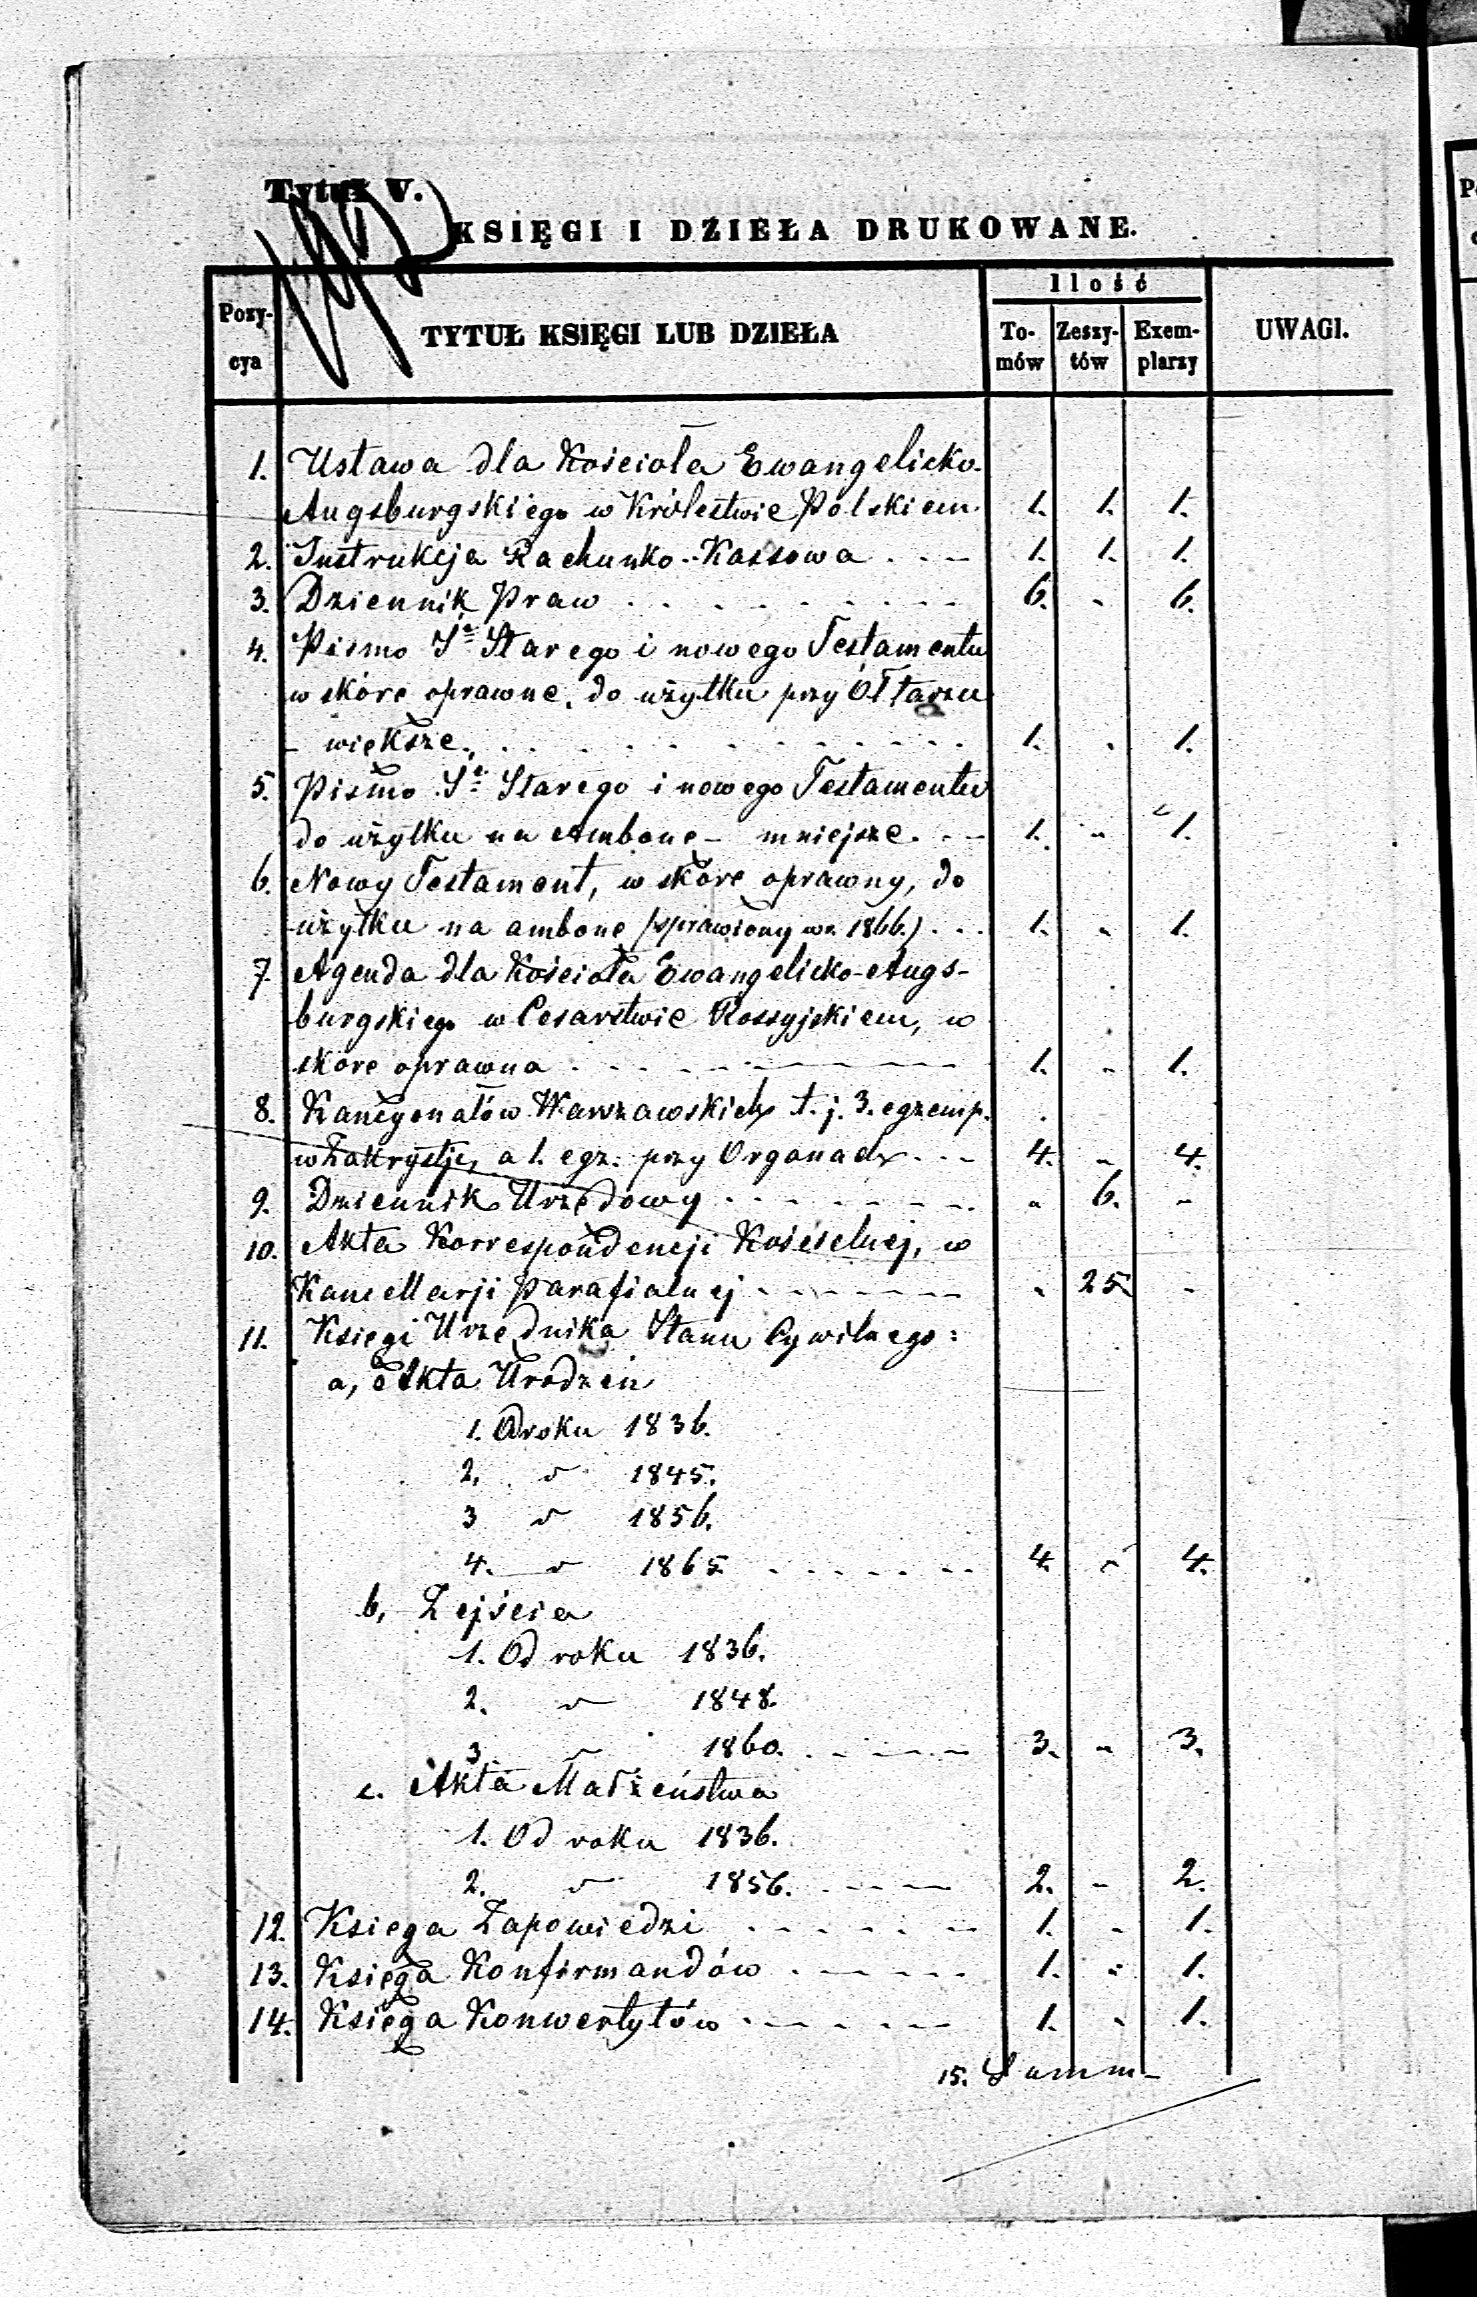 Tytuł V.
KSIĘGI I DZIEŁA DRUKOWANE.
Pozy-cya TYTUŁ KSIĘGI LUB DZIEŁA Ilość To-mów Zeszy-tów Exem-plarzy UWAGI.
1. Ustawa dla Kościoła Ewangelicko-
Augsburgskiego w Królestwie Polskiem 1. 1. 1.
2. Instrukcja Rachunko-Kassowa . . - 1. 1. 1.
3. Dziennik Praw . . . . . . . . 6. " 6.
4. Pismo Ste Starego i nowego Testamentu
w skórę oprawne, do użytku przy Ołtarzu
- większe . . . . . . . . . . 1. " 1.
5. Pismo Ste Starego i nowego Testamentu
do użytku na Ambonę - mniejsze . . - 1. " 1.
6. Nowy Testament, w skórę oprawny, do
użytku na ambonę (sprawiony w r. 1866.) . . . 1. " 1.
7. Agenda dla Kościoła Ewangelicko-Augs-
burgskiego w Cesarstwie Rossyjskiem, w
skórę oprawna . . . . . . . . 1. " 1.
8. Kancyonałów Warszawskich t. j. 3. egzemp.
w Zakrystję, a 1. egz. przy Organach . . - 4. " 4.
9. Dziennik Urzędowy . . . . . . . " 6. "
10. Akta Korrespondencji Kościelnej, w
Kancellarji parafialnej . . . . . . " 25. "
11. Księgi Urzędnika Stanu Cywilnego:
a, Akta Urodzeń
1. Od roku 1836.
2. " 1845.
3 " 1856.
4. " 1865 . . . . . . . 4. " 4.
b, Zejścia
1. Od roku 1836.
2. " 1848.
3. " 1860. . . . . . 3. " 3.
c. Akta Małżeństwa
1. Od roku 1836.
2. " 1856. . . . . 2. " 2.
12. Księga Zapowiedzi . . . . . . 1. " 1.
13. Księga Konfirmandów . . . . . 1. " 1.
14. Księga Konwertytów . . . . . . 1. " 1.
15. Summ-